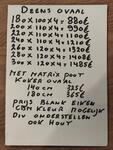 DEENS OVAAL
180 x 100 x 4 = 880€
200 x 110 x 4 = 990€
220 x 110 x 4 = 1100€
240 x 110 x 4 = 1210€
260 x 120 x 4 = 1320€
280 x 120 x 4 = 1408€
300 x 120 x 4 = 1485€
MET MATRIX POOT
KOKER OVAAL
140 cm 325€
180 cm 365€
PRIJS BLANK EIKEN
GEEN KLEUR MOGELIJK
DIV ONDERSTELLEN
OOK HOUT